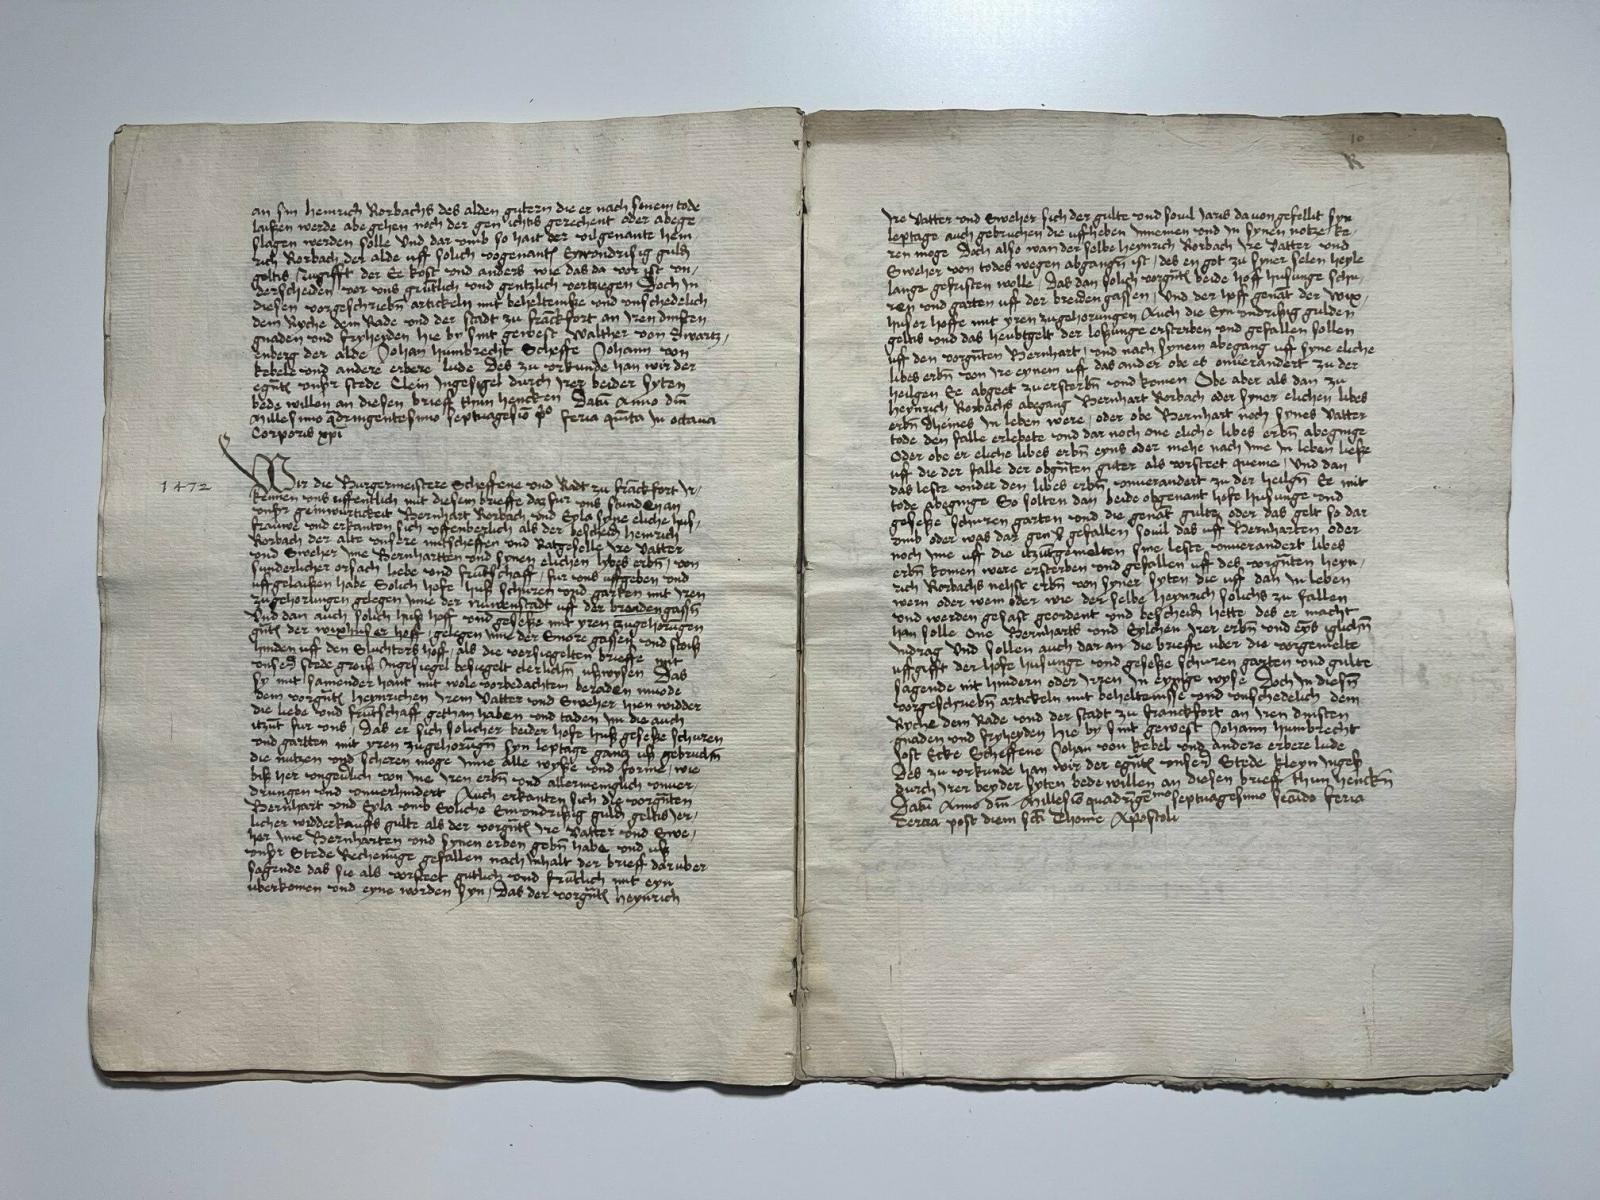 an sin heinrich Rorbachs des alden gutern die er nach synem tode
laissen werde abe gehen noch der gen ichtis gerechent oder abege
slagen werden solle Und dar umb so hait der vilgenante hein
rich Rorbach der alde uff solich vogenant Eynondrißig guld
geltis zugifft der Ee kost und anders wie das da vor ist un,
derscheiden vor uns gutlich und gentzlich vertziegen Doch in
diesen vorgeschriebn artickeln mit beheltenisse und unschedelich
dem Ryche dem Rade und der stadt zu franckfort an yren dinsten
gnaden und fryheyden hie by sint gewest Walther von Swartz,
enberg der alde Johan humbrecht Scheffe Johann von
kebele und andere erbere lude Des zu urkunde han wir der
egnt unsr stede Clein Ingesigel durch yrer beider syten
bede willen an diesen brieff thun hencken Datu Anno dni
Millesimo qdringentesimo septuagesio pº feria quita in octava
Corporis xpi
1472
Wir die Burgermeistere Scheffene und Radt zu franckfort ir,
kennen uns uffentlich mit diesem brieffe daz fur uns stunden an
unsr geinwurtickeit Bernhart Rorbach und Eyla syne eliche hus,
frauwe und erkanten sich uffenberlich als der bescheid heinrich
Rorbach der alte unsere mitscheffen und Ratgeselle ire vatter
und Sweher ime Bernhartten und synen elichen lybes erbn, von
sunderlicher orsach liebe und fruntschafft, fur uns uffgeben und
uffgelaissen habe Solich hofe husß schuren und garten mit iren
zugehorungen gelegen inne der nuwenstadt uff der breidengassn
Und dan auch solich husß hoff und gesesse mit yren zugehorugen
gnt der wixhuser hoff, gelegen inne der Snore gassen und stoiß
hinden uff den Sluchters hoff, als die versiegelten brieffe mit
unser stede groiß Ingesiegel besiegelt clerlichn ußwysen Das
sy mit samender hant mit wole vorbedachtem beraden muode
dem vorgnt heynrichen irem vatter und Sweher hien widder
die liebe und fruntschaff gethan haben und taden im die auch
itzut fur uns, Das er sich solicher beider hofe huß gesesse schuren
und gartten mit yren zugehorugn syn leptage gantz uß gebruchn
die nutzen und scheren moge inne alle wyse und forme, wie
biß her ungeverlich von ine iren erbn und allermenglich unver,
drungen und unverhindert Auch erkanten sich die vorgnten
Bernhart und Eyla umb Soliche Eynondrißig guld geltis ier,
licher widderkauffs gulte als der vorgnt ire vatter und Swe,
her ime Bernharten und synen erben gebn habe und uß
unsr Stede Rechenuge gefallen nach inhalt der brieff daruber
sagende das sie als vorsteet gutlich und fruntlich mit eyn
uberkomen und eyne worden syn, Das der vorgnt heynrich
10
ire vatter und Sweher sich der gulte und souil iaris davon gefellit syn
leptage auch gebruchen die uffheben innemen und in synen notze ke,
ren moge Doch also wan der selbe heynrich Rorbach ire vatter und
Sweher von todes wegen abgangn ist, des en got zu syner selen heyle
lange gefristen wolle, Das dan solich vorgnt beide hoff husunge schu,
ren und garten uff der breiden gassen, Und der hoff genat der wix,
huser hoffe mit yren zugehorungen Auch die Eyn undrißig gulden
geltis und das heubtgelt der losunge ersterben und gefallen sollen
uff den vorgnten Bernhart, und nach synem abegang uff syne eliche
libes erbn von ire eynem uff das ander obe es onverandert zu der
heilgen Ee abgeet zu ersterbn und komen Obe aber als dan zu
heynrich Rorbachs abegang Bernhart Rorbach oder syner elichen libes
erbn dheines in leben were, oder obe Bernhart noch synes vatter
tode den falle erlebete und dar noch one eliche libes erbn abeginge
Oder obe er eliche libes erbn eyns oder mehe nach ime in leben ließe
uff die der falle der obgnten guter als vorsteet queme, Und dan
das leste under den libes erbn unverandert zu der heilgn Ee mit
tode abeginge So solten dan beide obgenant hofe husunge und
gesesse schuren garten und die genat gulte oder das gelt so dar
umb oder was dar gen gefallen souil das uff Bernharten oder
noch ime uff die itzutgemelten sine leste unverandert libes
erbn komen were ersterben und gefallen uff des vorgnten heyn,
rich Rorbachs nehst erbn von syner syten die uff dan in leben
wern oder wem oder wie der selbe heynrich solichs zu fallen
und werden gesast geordent und bescheidn hette des er macht
han solle One Bernharts und Eylchen irer erbn und eyns iglichn
indrag Und sollen auch dar an die brieffe uber die vorgemelte
uffgifft der hofe husunge und gesesse schuren garten und gulte
sagende nit hindern oder irren in eynige wyse Doch in diesn
vorgeschriebn artickeln mit beheltenisse und unschedelich dem
Ryche dem Rade und der stadt zu franckfort an iren dinsten
gnaden und fryheyden hie by sint gewest Johann humbrecht
Jost Ecke Scheffene Johan von kebel und andere erbere lude
Des zu urkunde han wir der egnt unser Stede kleyn Ingeß
durch irer beyder syten bede willen an diesen brieff thun henckn
Datu Anno dni Millesio quadringemo septuagesimo secudo feria
Tercia post diem sci Thome Apostoli